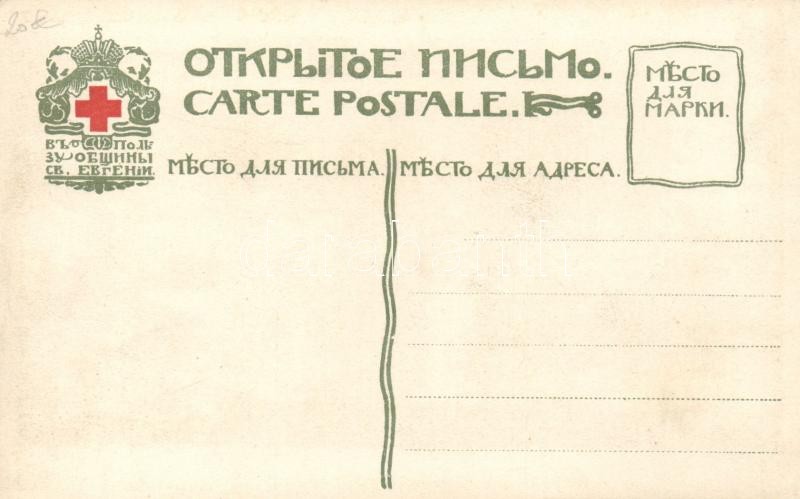 ОТКРЫТОЕ ПИСЬМО.
CARTE POSTALE.
МѢСТО
ДЛЯ
МАРКИ.
ВЪ ПОЛЬ
ЗУ ОБЩИНЫ
СВ. ЕВГЕНІИ.
МѢСТО ДЛЯ ПИСЬМА.
МѢСТО ДЛЯ АДРЕСА.
darabanth